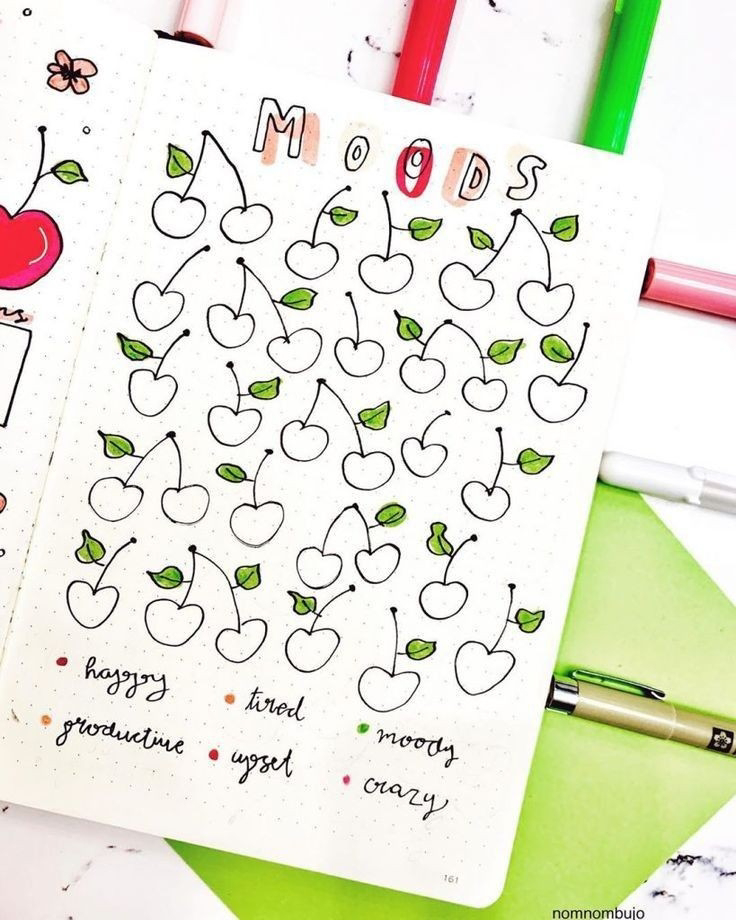 MOODS
happy
tired
moody
productive
upset
crazy
161
nomnombujo